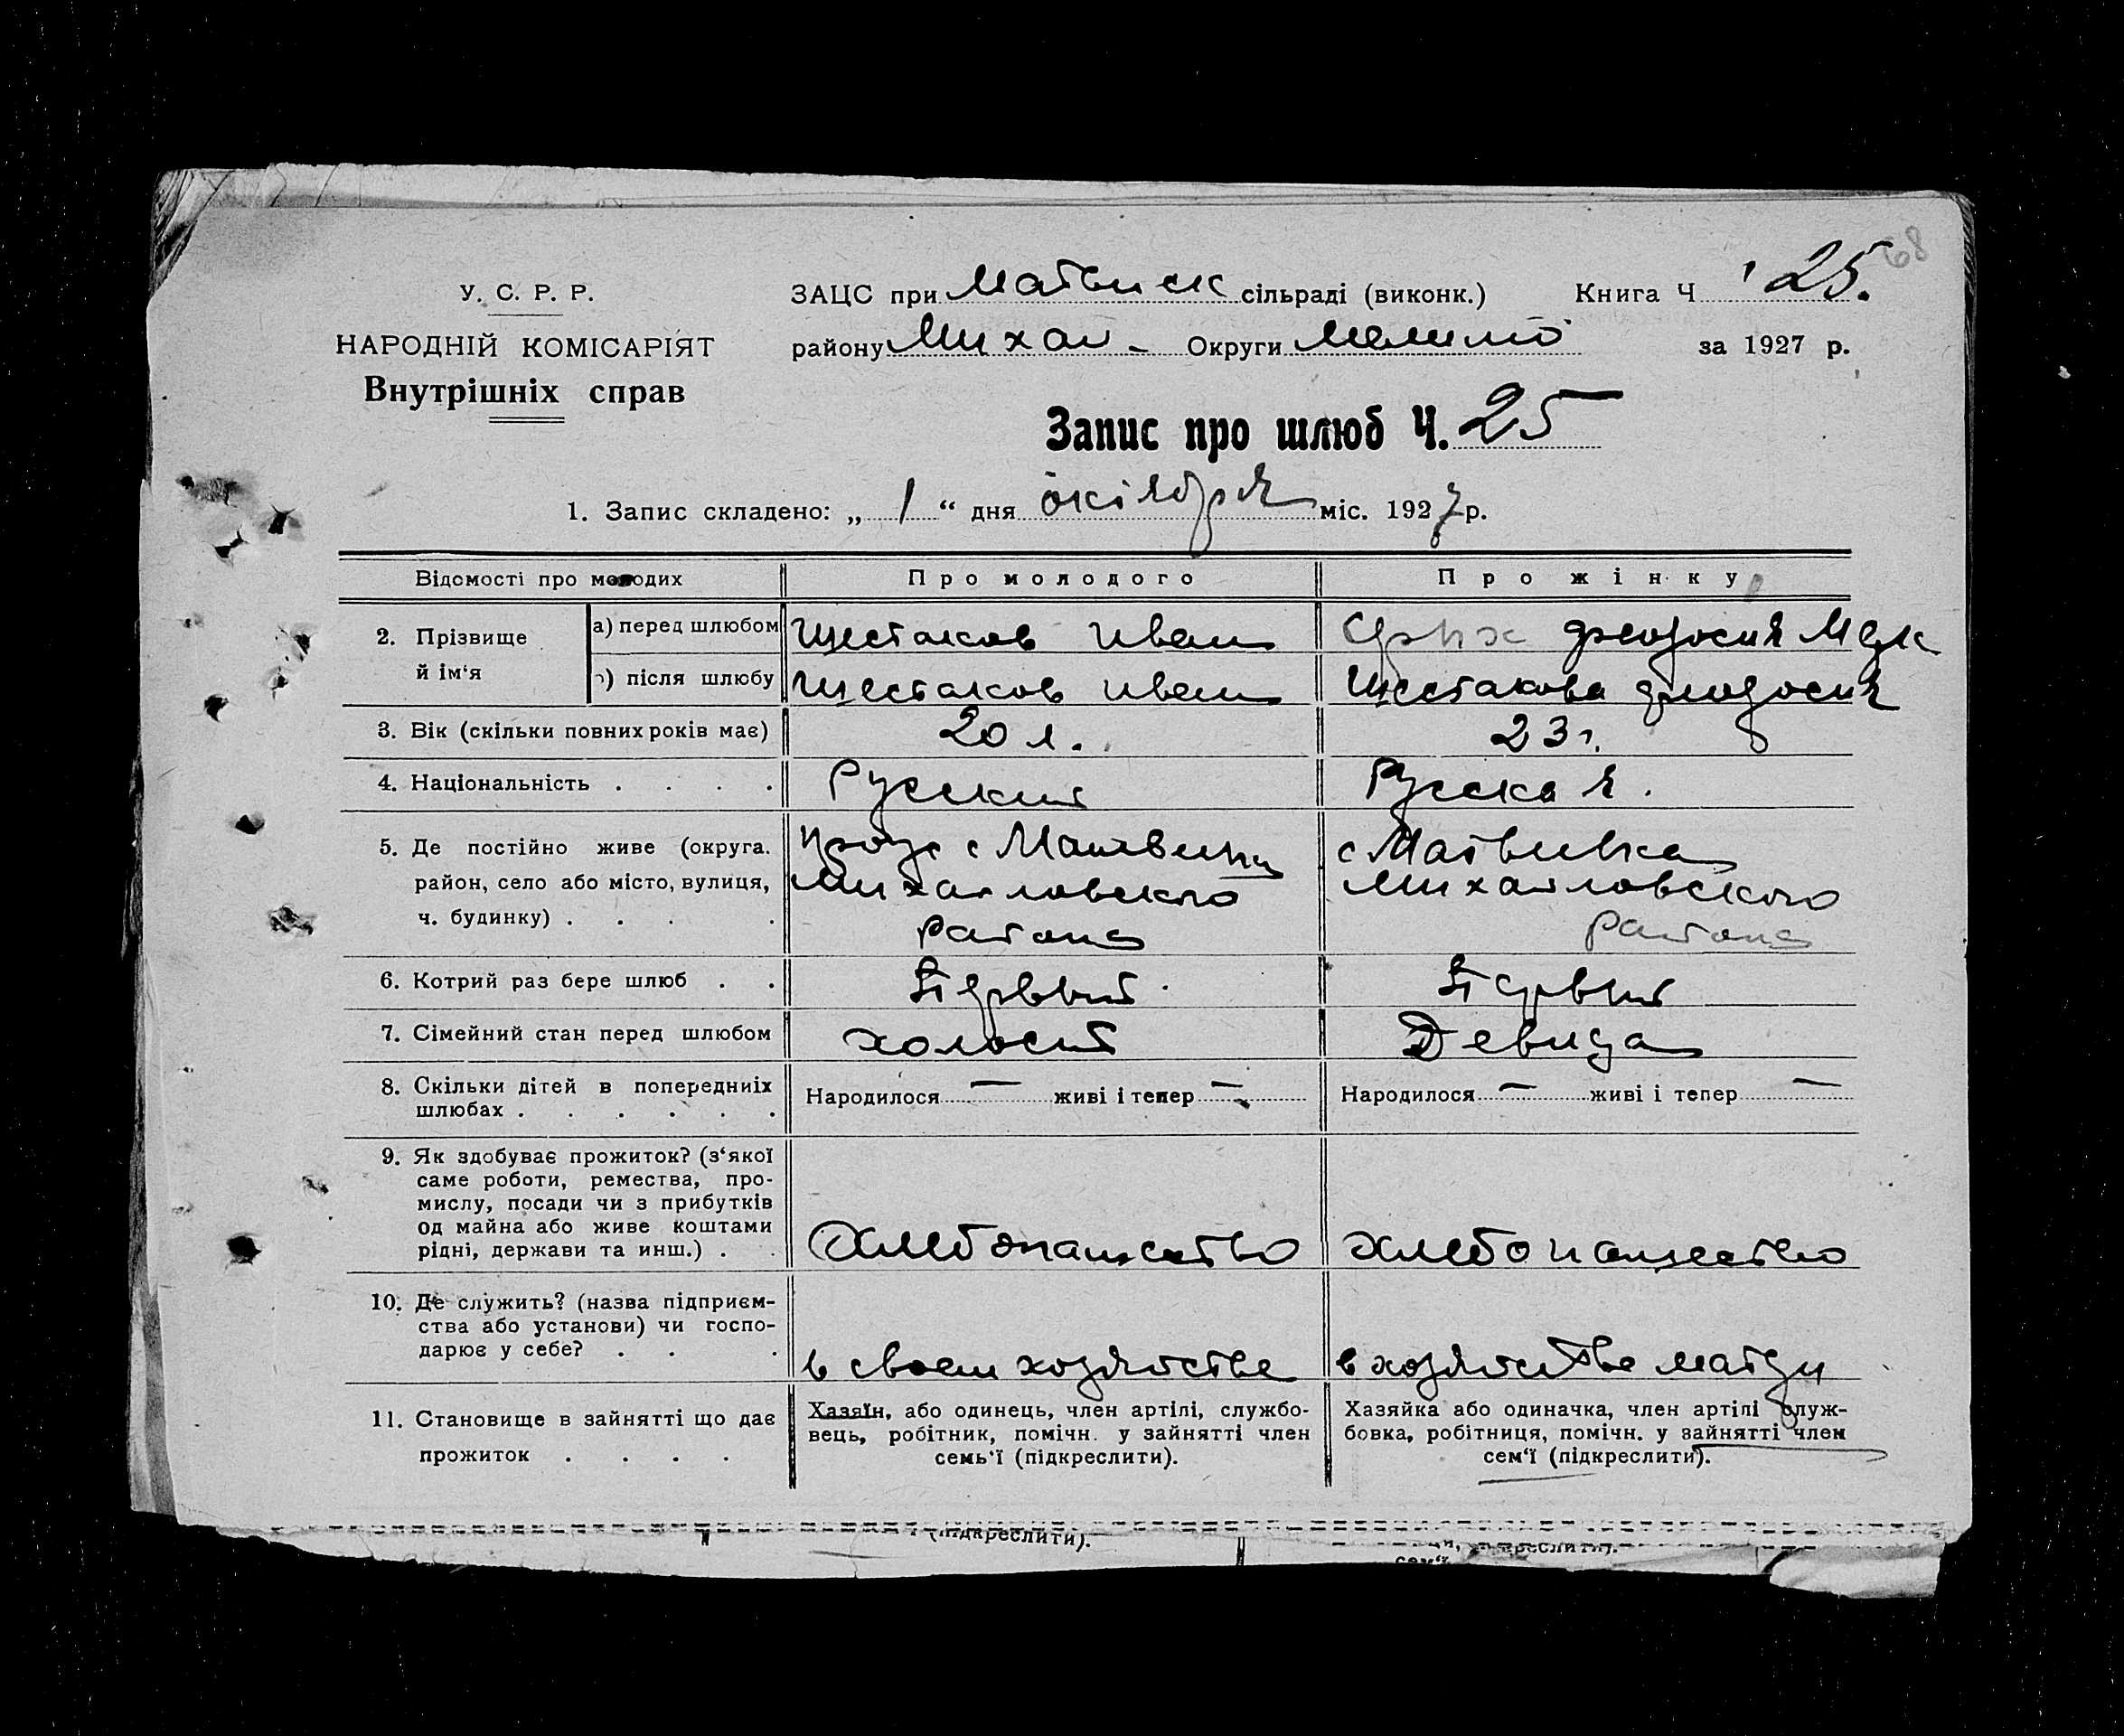 68
У. С. Р. Р.
НАРОДНІЙ КОМІСАРІЯТ
Внутрішніх справ
ЗАЦС при Матвиск сільраді (виконк.) Книга Ч 25.
району Михай- Округи Мелито за 1927 р.
Запис про шлюб Ч. 25
1. Запис складено: „ 1 “ дня октября міс. 1927 р.
Відомості про молодих Про молодого Про жінку
2. Прізвище й ім‘я
а) перед шлюбом Шестаков Иван Феодосия
б) після шлюбу Шестаков Иван Шестакова Феодосия
3. Вік (скільки повних років має) 20 л. 23 г.
4. Національність . . . . Русский Русская.
5. Де постійно живе (округа. с Матвеевка
район, село або місто, вулиця, Михайловского Михайловского
ч. будинку) . . . . района района
6. Котрий раз бере шлюб . . Первый Первый
7. Сімейний стан перед шлюбом холост Девица
8. Скільки дітей в попередниіх Народилося — живі і тепер — Народилося — живі і тепер —
шлюбах . . . . . .
9. Як здобуває прожиток? (з‘якої
саме роботи, ремества, про-
мислу, посади чи з прибутків
од майна або живе коштами
рідні, держави та инш.) . . Хлебопашество Хлебопашество
10. Де служить? (назва підприєм-
ства або установи) чи госпо-
дарює у себе? . . . в своем хозяйстве в хозяйстве
11. Становище в зайнятті що дає Хазяїн, або одинець, член артілі, службо- Хазяйка або одиначка, член артілі служ-
вець, робітник, помічн. у зайнятті член бовка, робітниця, помічн. у зайнятті член
прожиток . . . . семь‘ї (підкреслити). сем‘ї (підкреслити).
(підкреслити).